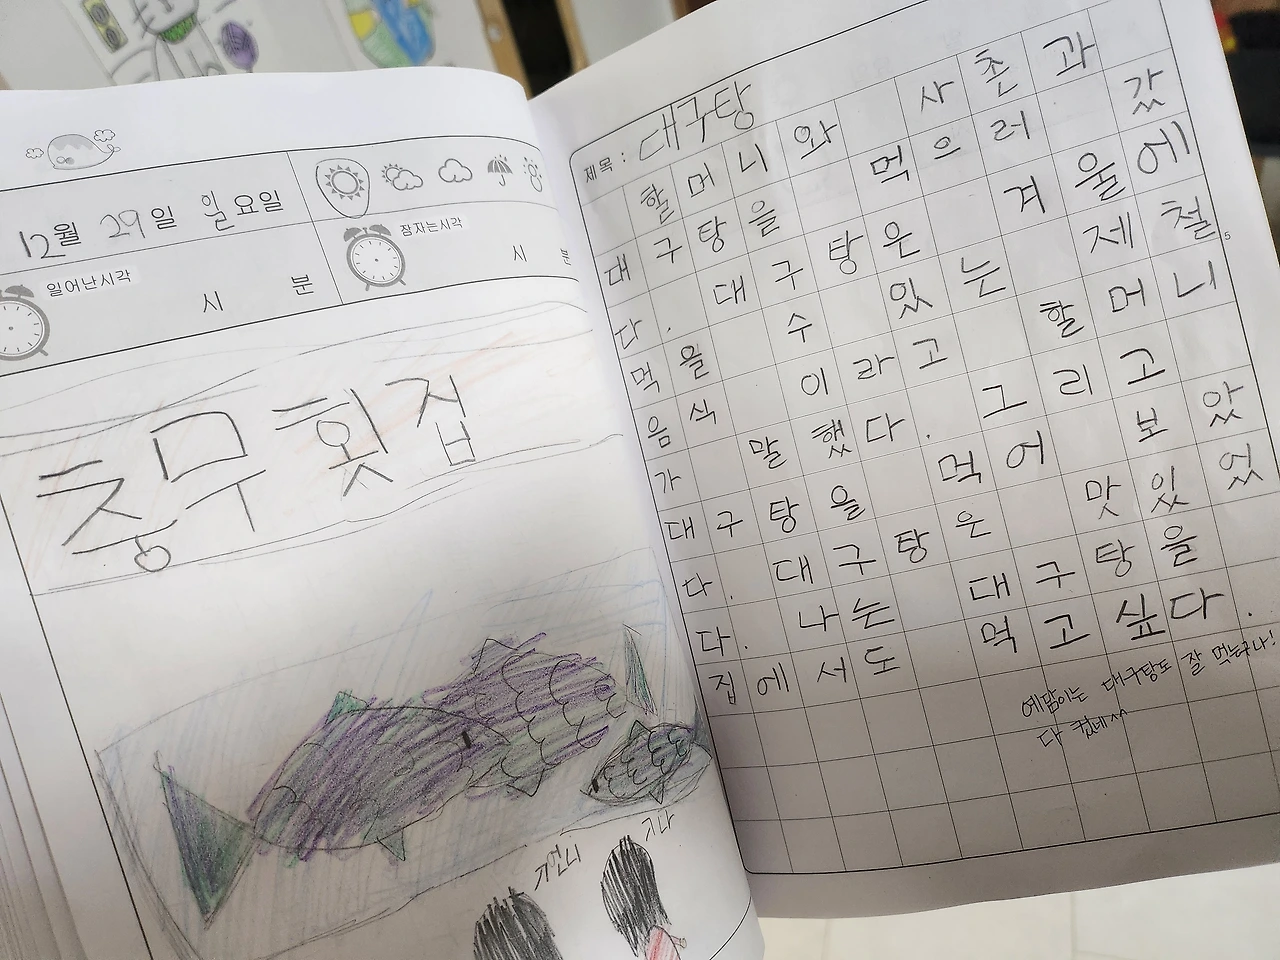 12월 29일 일요일
일어난시각
시 분
잠자는시각
시 분
충무횟집
지나
제목 : 대구탕
할머니와 사촌과
대구탕을 먹으러 갔
다. 대구탕은 겨울에
먹을 수 있는 제철
음식 이라고 할머니
가 말했다. 그리고
대구탕을 먹어 보았
다. 대구탕은 맛있었
다. 나는 대구탕을
집에서도 먹고싶다.
예담이는 대구탕도 잘 먹는구나!
다 컸네^^
5